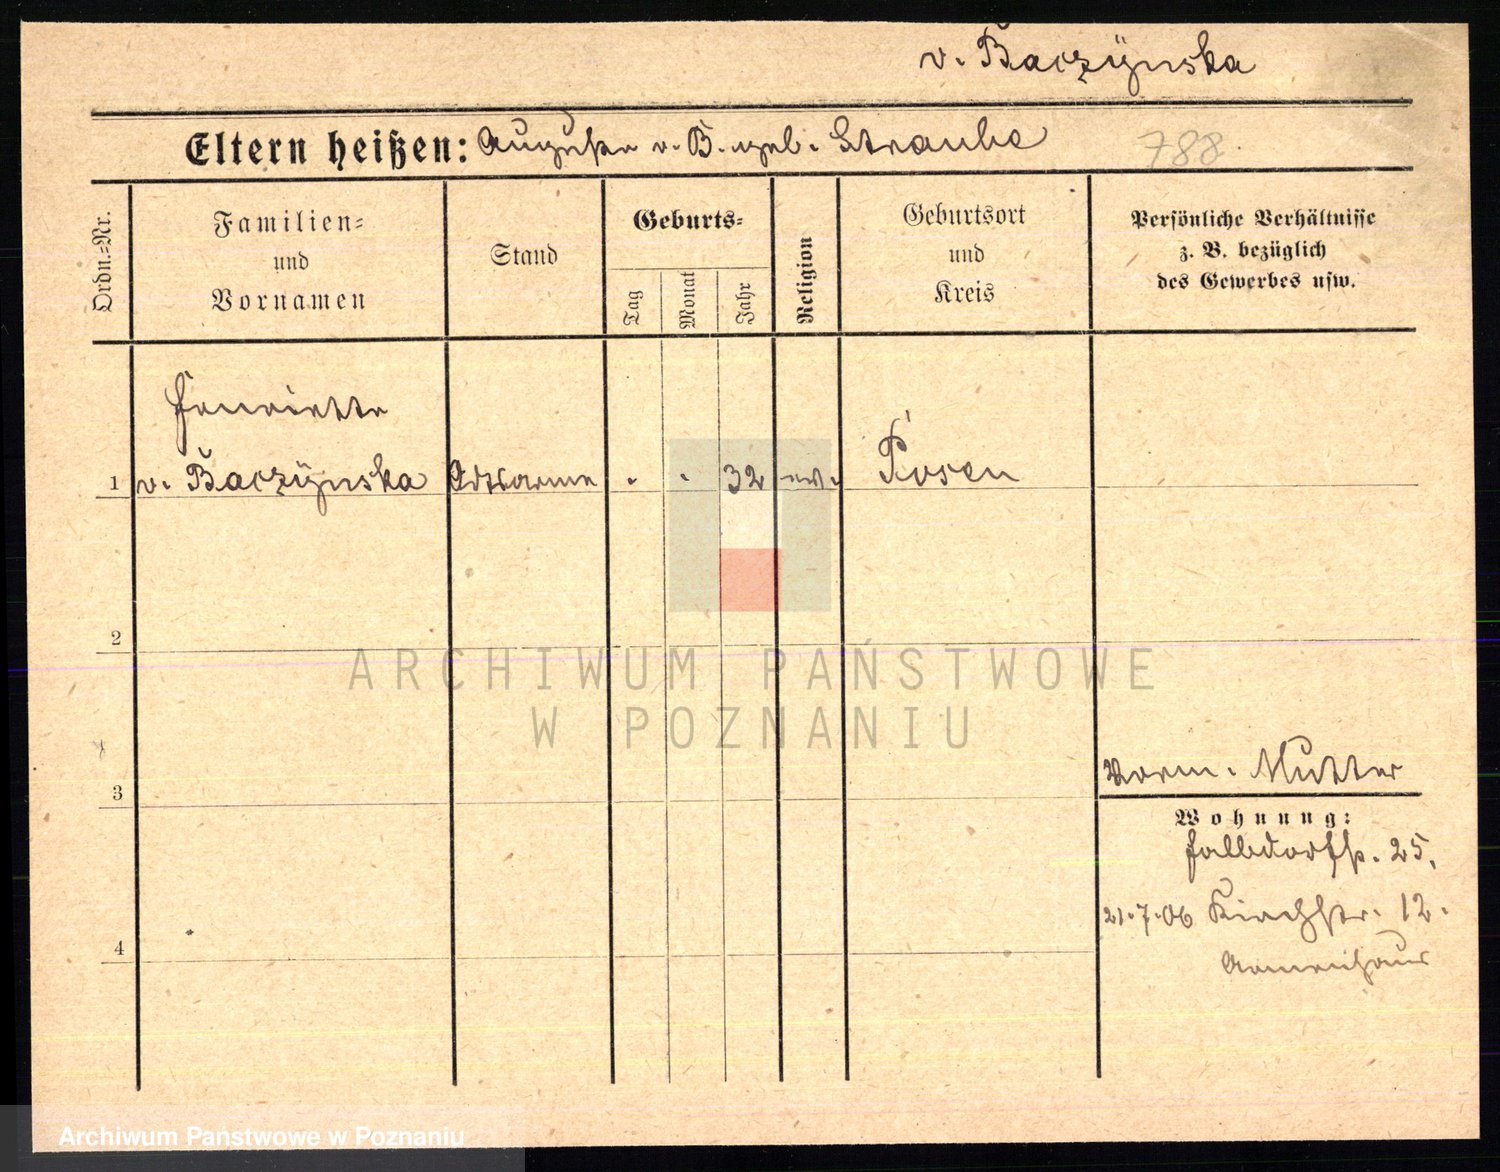 v. Baczÿnska
Eltern heißen: Auguste v. B. geb. Straube
788.
Ordn.=Nr.
Familien=
und
Vornamen
Stand
Geburts=
Tag
Monat
Jahr
Religion
Geburtsort
und
Kreis
Persönliche Verhältnisse
z. B. bezüglich
des Gewerbes usw.
Henriette
1 v. Baczÿnska Ortsarme . . 32 ev. Posen
2
3
4
Vorm. Mutter
Wohnung:
Halbdorfstr. 25.
21.7.06 Kirchstr. 12.
Armenhaus
ARCHIWUM PAŃSTWOWE
W POZNANIU
Archiwum Państwowe w Poznaniu